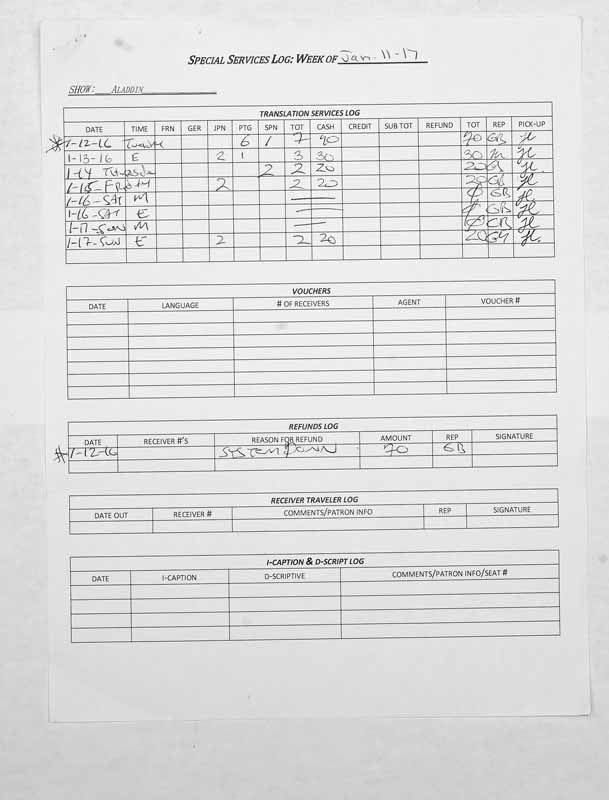 SPECIAL SERVICES LOG: WEEK OF Jan. 11-17
SHOW: ALADDIN
TRANSLATION SERVICES LOG
DATE TIME FRN GER JPN PTG SPN TOT CASH CREDIT SUB TOT REFUND TOT REP PICK-UP
1-12-16 6 1 7 70 GB JL
1-13-16 E 2 1 3 30 30 JL
1-14 2 2 20 20 GB JL.
1-15- 2 2 20 20 GB JL
1-16-SAT M GB JL
1-16-SAT E GB JL
1-17-Sun M GB JL
1-17-SUN E 2 2 20 20 JL.
VOUCHERS
DATE LANGUAGE # OF RECEIVERS AGENT VOUCHER #
REFUNDS LOG
DATE RECEIVER #'S REASON FOR REFUND AMOUNT REP SIGNATURE
1-12-16 SYSTEM DOWN 70 GB
RECEIVER TRAVELER LOG
DATE OUT RECEIVER # COMMENTS/PATRON INFO REP SIGNATURE
I-CAPTION & D-SCRIPT LOG
DATE I-CAPTION D-SCRIPTIVE COMMENTS/PATRON INFO/SEAT #